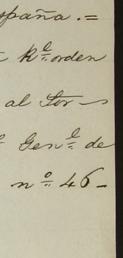 spaña.=
Rl. orden
al Sor
Genl. de
nº. 46-